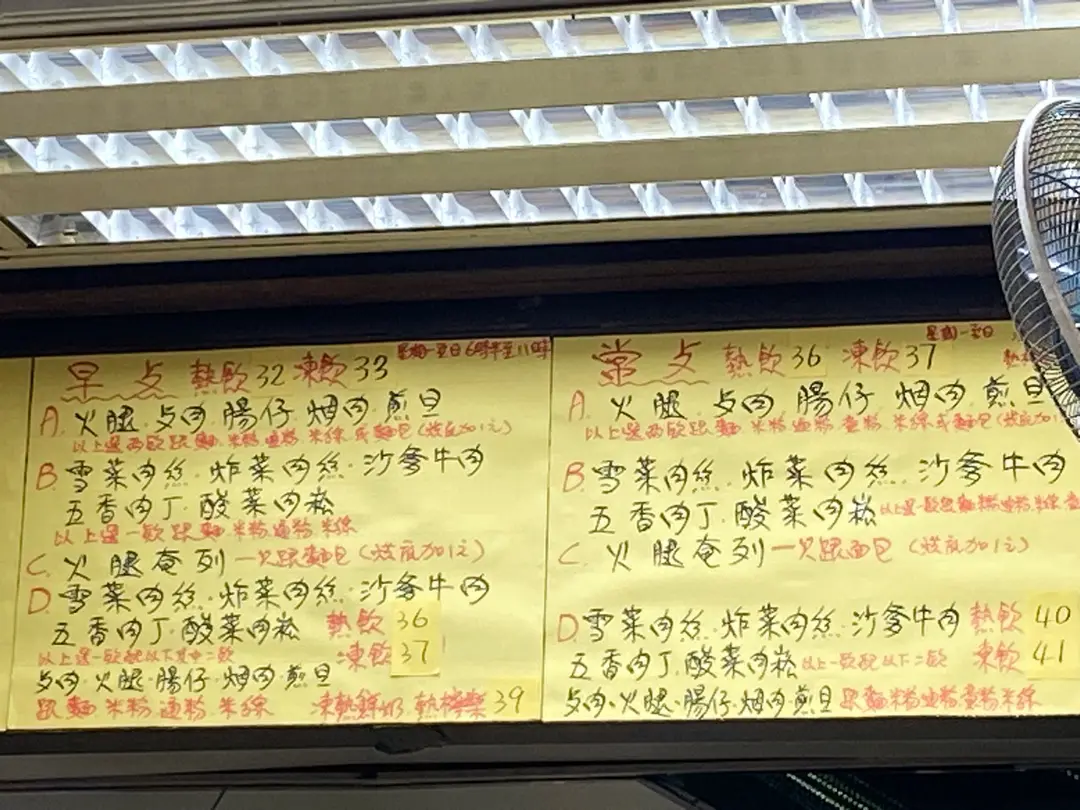 早点 熱飲32 凍飲33 星期一至日6時半至11時
A. 火腿.点肉.腸仔.烟肉.煎旦
以上選两款跟麵.米粉.通粉.米線或麵包(烘底加1元)
B. 雪菜肉絲.炸菜肉絲.沙爹牛肉
五香肉丁.酸菜肉崧
以上選一款跟麵.米粉.通粉.米線
C. 火腿奄列一只跟麵包(烘底加1元)
D. 雪菜肉絲.炸菜肉絲.沙爹牛肉
五香肉丁.酸菜肉崧 熱飲36
以上選一款配以下其中二款 凍飲37
点肉.火腿.腸仔.烟肉.煎旦
跟麵.米粉.通粉.米線 凍熱鮮奶.熱檸樂39
常点 熱飲36 凍飲37 星期一至日
A. 火腿.点肉.腸仔.烟肉.煎旦
以上選两款跟麵.米粉.通粉.米線或麵包(烘底加1
B. 雪菜肉絲.炸菜肉絲.沙爹牛肉
五香肉丁.酸菜肉崧 以上選一款跟麵
C. 火腿奄列一只跟面包(烘底加1元)
D. 雪菜肉絲.炸菜肉絲.沙爹牛肉 熱飲40
五香肉丁.酸菜肉崧 以上一款配以下二款 凍飲41
点肉.火腿.腸仔.烟肉.煎旦 跟麵.米粉.通粉.米線